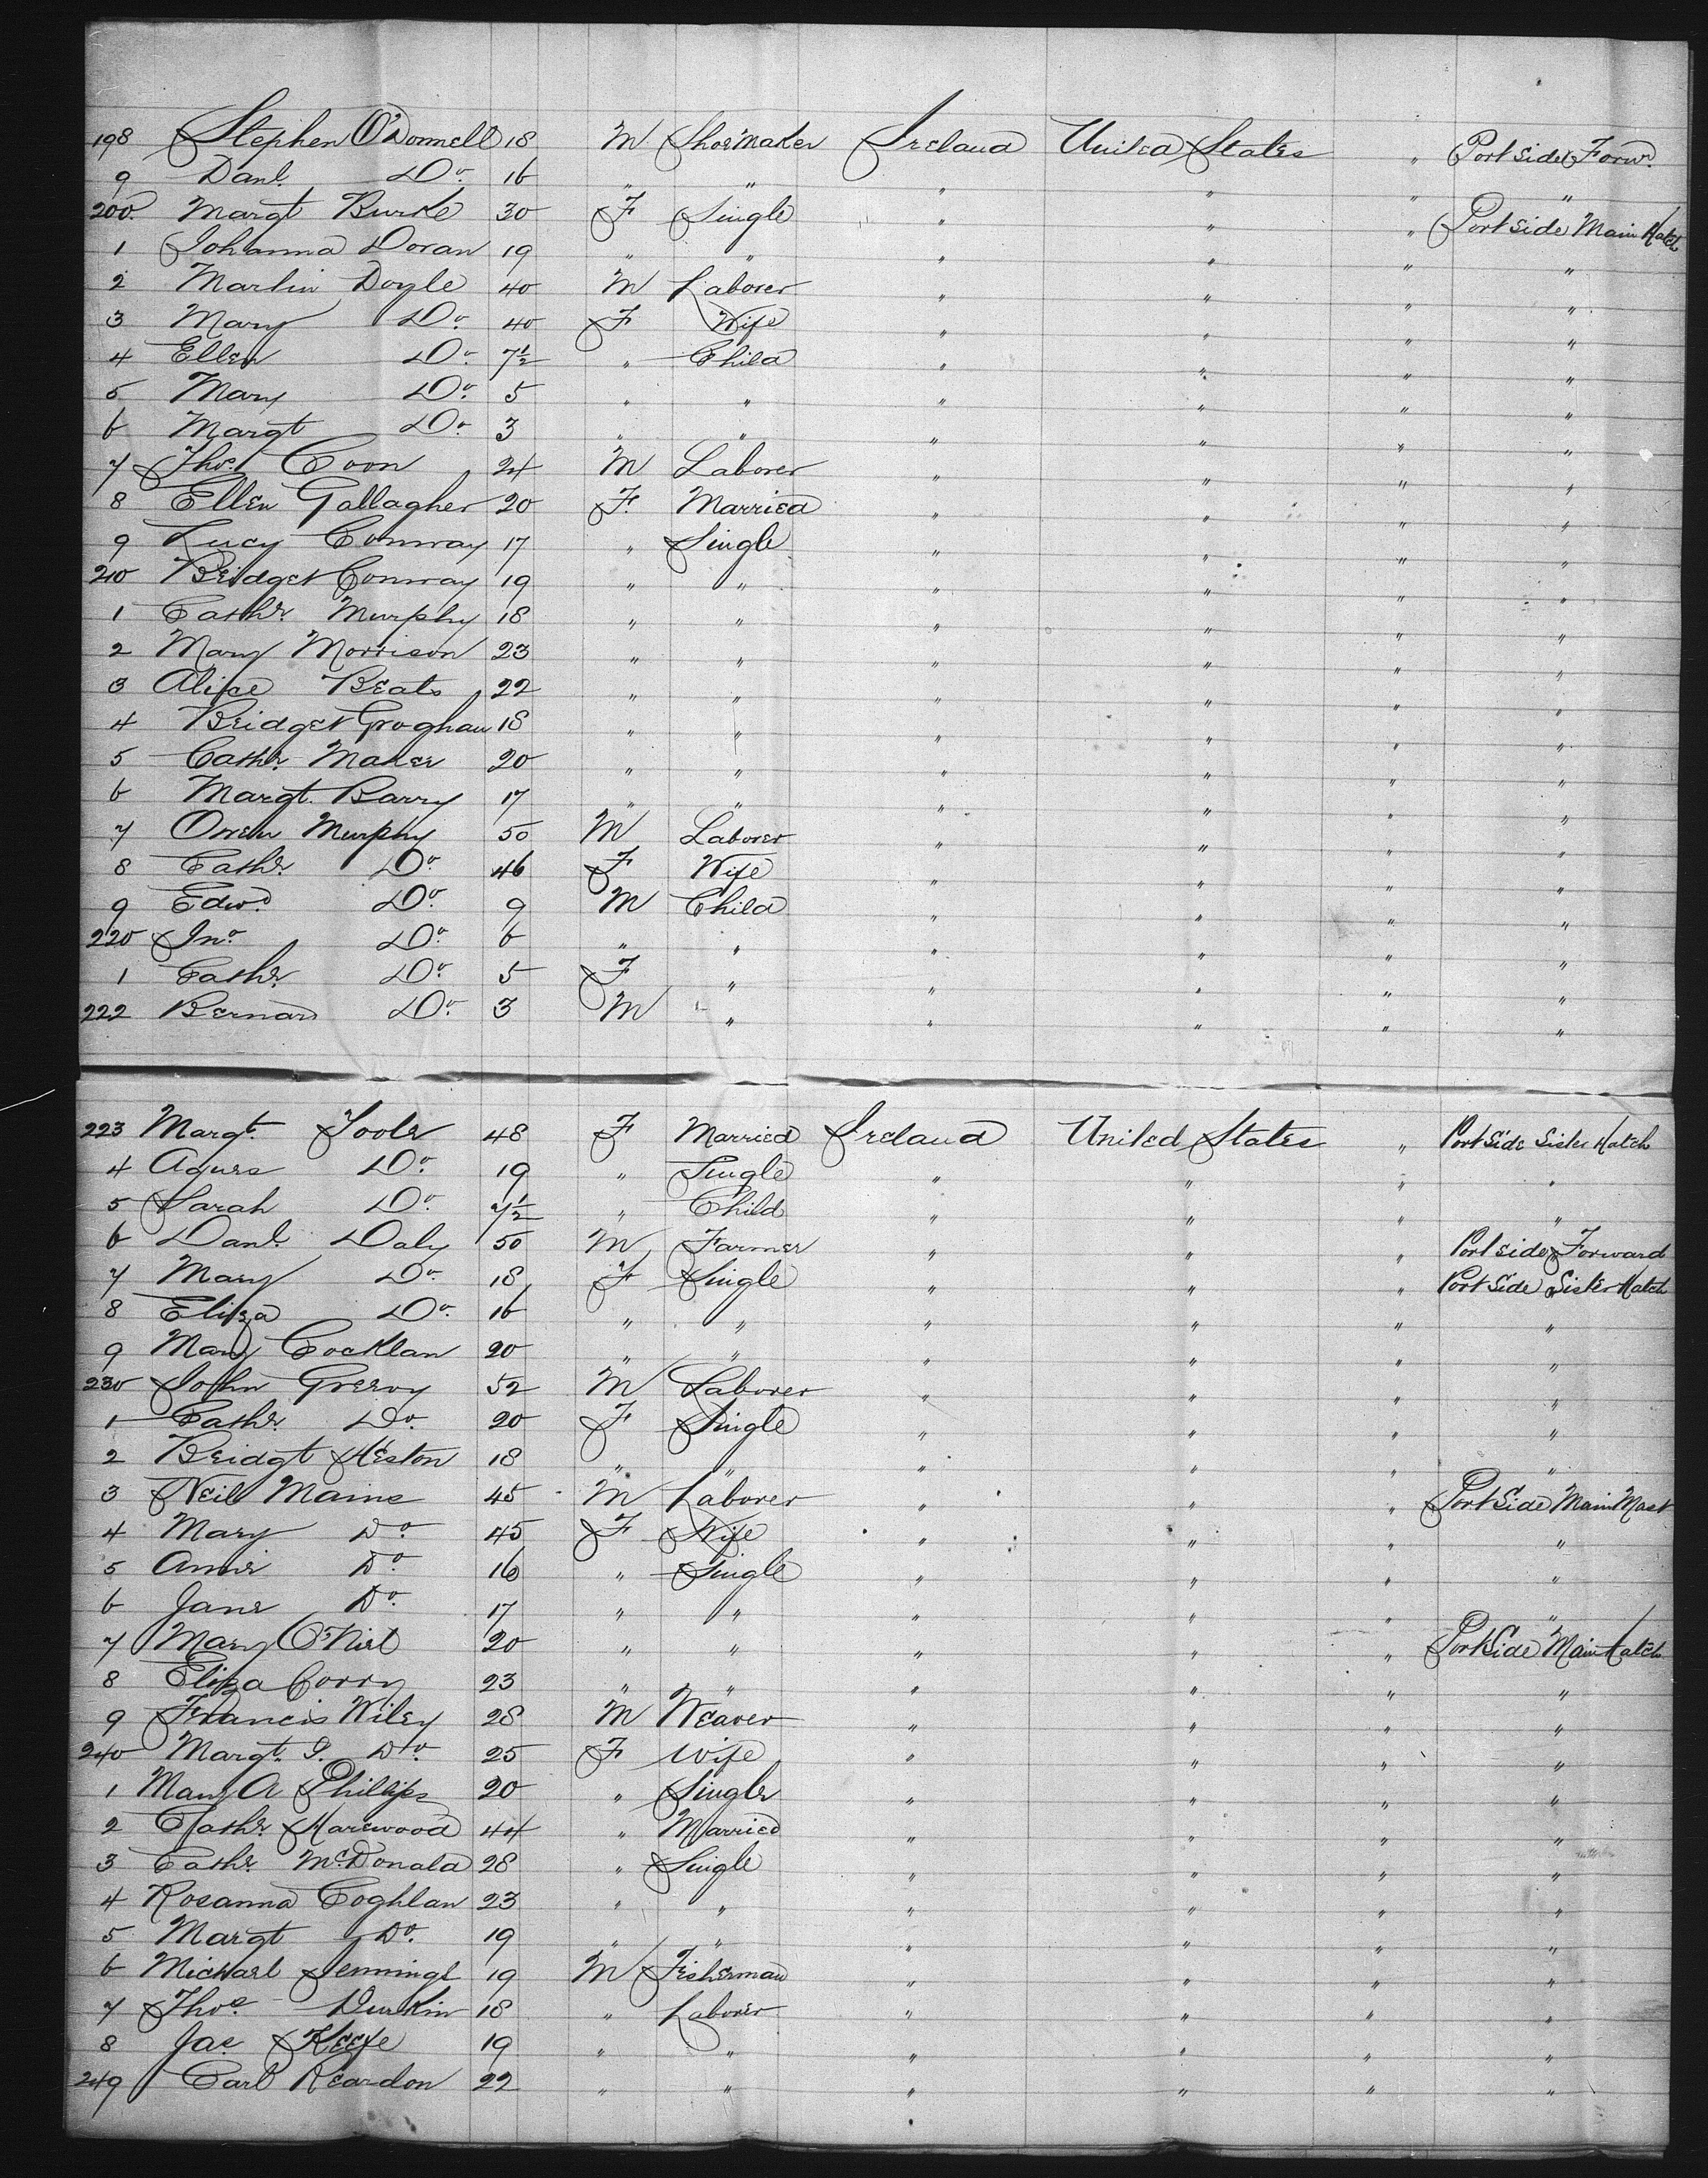 198 Stephen O'Donnell 18 M Shoemaker Ireland United States " Port Side Forwd.
9 Danl. Do. 16 " " " " " "
200 Margt Burke 30 F Single " " " Port Side Main Hatch
1 Johanna Doran 19 " " " " " "
2 Martin Doyle 40 M Laborer " " " "
3 Mary Do. 40 F Wife " " " "
4 Ellen Do. 7½ " Child " " " "
5 Mary Do. 5 " " " " " "
6 Margt Do. 3 " " " " " "
7 Thos. Coon 24 M Laborer " " " "
8 Ellen Gallagher 20 F. Married " " " "
9 Lucy Conway 17 " Single " " " "
210 Bridget Conway 19 " " " " " "
1 Cathe. Murphy 18 " " " " " "
2 Mary Morrison 23 " " " " " "
3 Alice Beats 22 " " " " " "
4 Bridget Groghan 18 " " " " " "
5 Cathe. Maher 20 " " " " " "
6 Margt. Barry 17 " " " " " "
7 Owen Murphy 50 M Laborer " " "
8 Cathe. Do. 46 F Wife " " " "
9 Edwd. Do. 9 M Child " " " "
220 Jno. Do. 6 " " " " " "
1 Cathe. Do. 5 F " " " " "
222 Bernard Do. 3 M " " " " "
223 Margt. Toole 48 F Married Ireland United States " Port Side Sister Hatch
4 Agnes Do. 19 " Single " " " "
5 Sarah Do. 7½ " Child " " " "
6 Danl. Daly 50 M Farmer " " " Port side Forward
7 Mary Do. 18 F Single " " " Port Side Sister Hatch
8 Eliza Do. 16 " " " " " "
9 Mary Cocklan 20 " " " " " "
230 John Greevy 52 M Laborer " " " "
1 Cathe. Do. 20 F Single " " " "
2 Bridgt Heston 18 " " " " " "
3 Neil Mains 45 M Laborer " " " Port Side Main Mast
4 Mary Do 45 F Wife " " "
5 Annie Do. 16 " Single " " " "
6 Jane Do. 17 " " " " " "
7 Mary O'Niel 20 " " " " " Port Side Main Hatch
8 Eliza Corry 23 " " " " " "
9 Francis Wiley 28 M Weaver " " " "
240 Margt. Do. 25 F Wife " " " "
1 Mary A Phillips 20 " Single " " " "
2 Cathe. Harewood 44 " Married " " " "
3 Cathe. McDonald 28 " Single " " " "
4 Rosanna Coghlan 23 " " " " " "
5 Margt Do. 19 " " " " " "
6 Michael Jennings 19 M Fisherman " " " "
7 Thos. Durkin 18 " Laborer " " " "
8 Jas Keefe 19 " " " " " "
249 Carl Reardon 22 " " " " " "